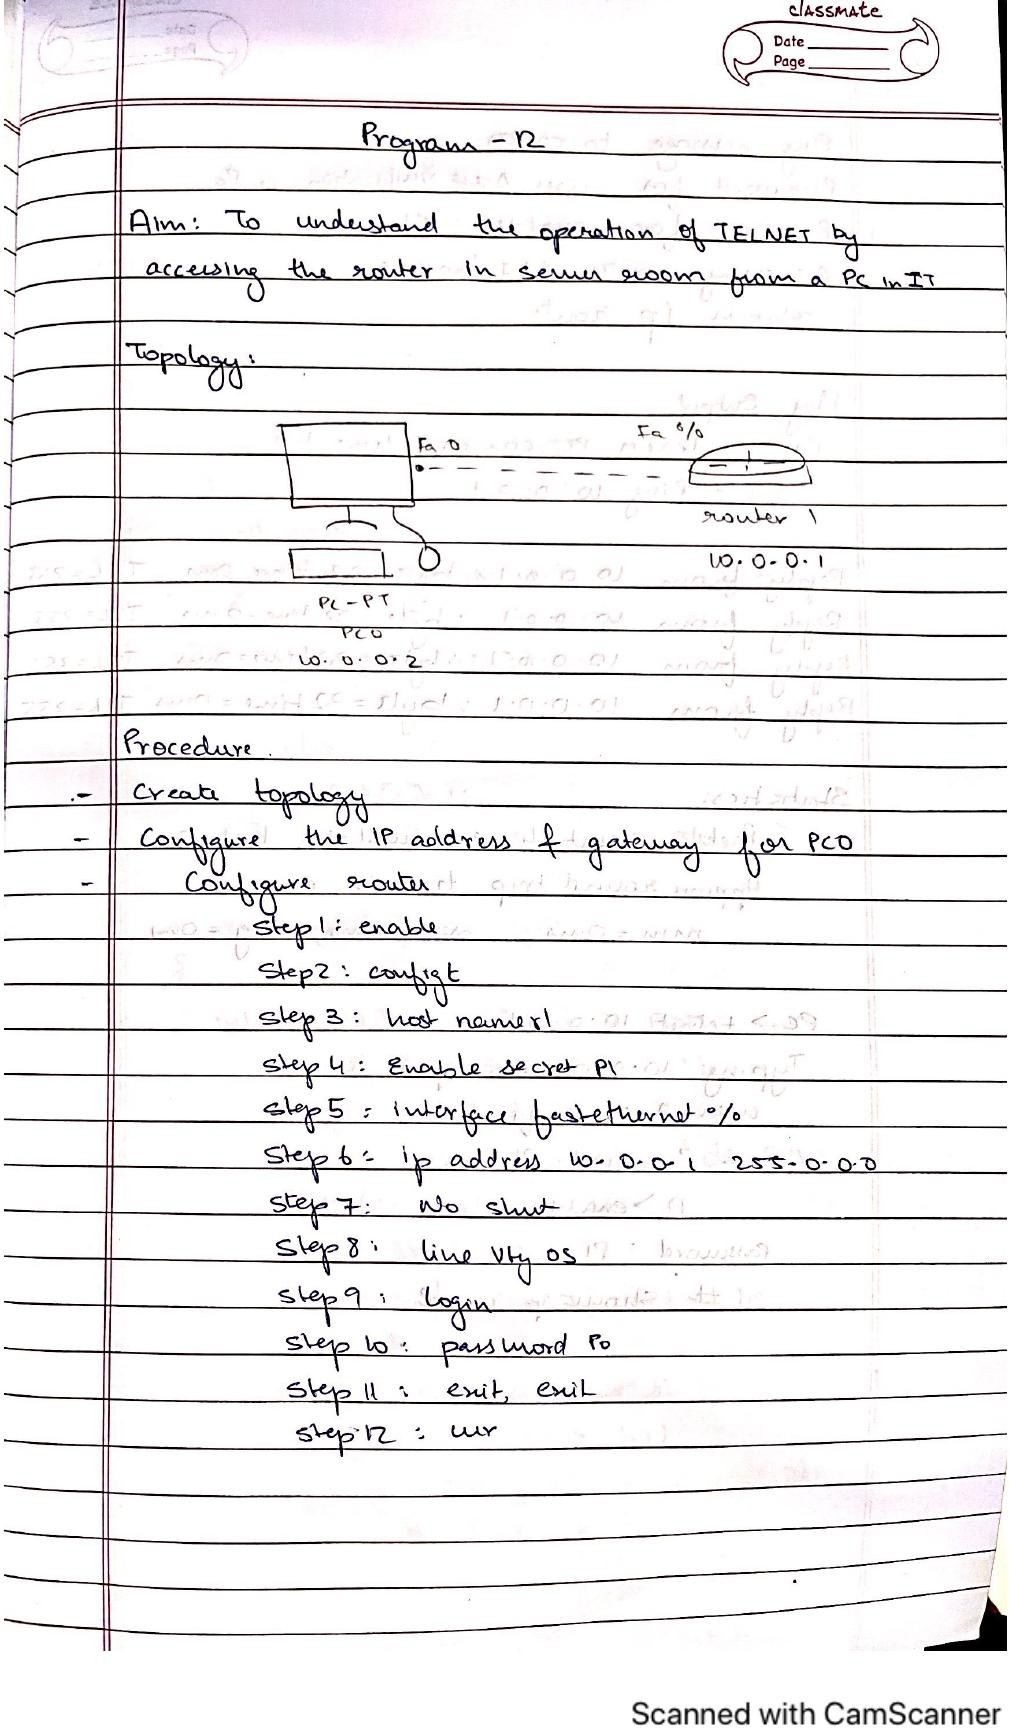 classmate
Date
Page
Program - 12
Aim: To understand the operation of TELNET by
accessing the router in server room from a PC in IT
Topology:
Fa 0
Fa 0/0
router 1
10.0.0.1
PC-PT
PC0
10.0.0.2
Procedure.
- Create topology
- Configure the IP address & gateway for PC0
- Configure router
Step 1: enable
Step 2: config t
Step 3: host name r1
Step 4: Enable secret P1
Step 5: interface fastethernet 0/0
Step 6: ip address 10.0.0.1 255.0.0.0
Step 7: No shut
Step 8: line vty 0 5
Step 9: login
Step 10: password P0
Step 11: exit, exit
Step 12: wr
Scanned with CamScanner